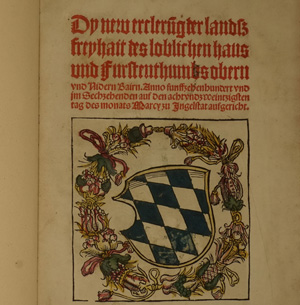 Dy new erclerũg der landß
freyhait des loblichen haus
und Furstenthumbs obern
vnd Nidern Bairn. Anno funffzehenhundert vnd
im Sechzehenden auf den acht vndzweintzigsten
tag des monats Marcy zu Ingelstat aufgericht.